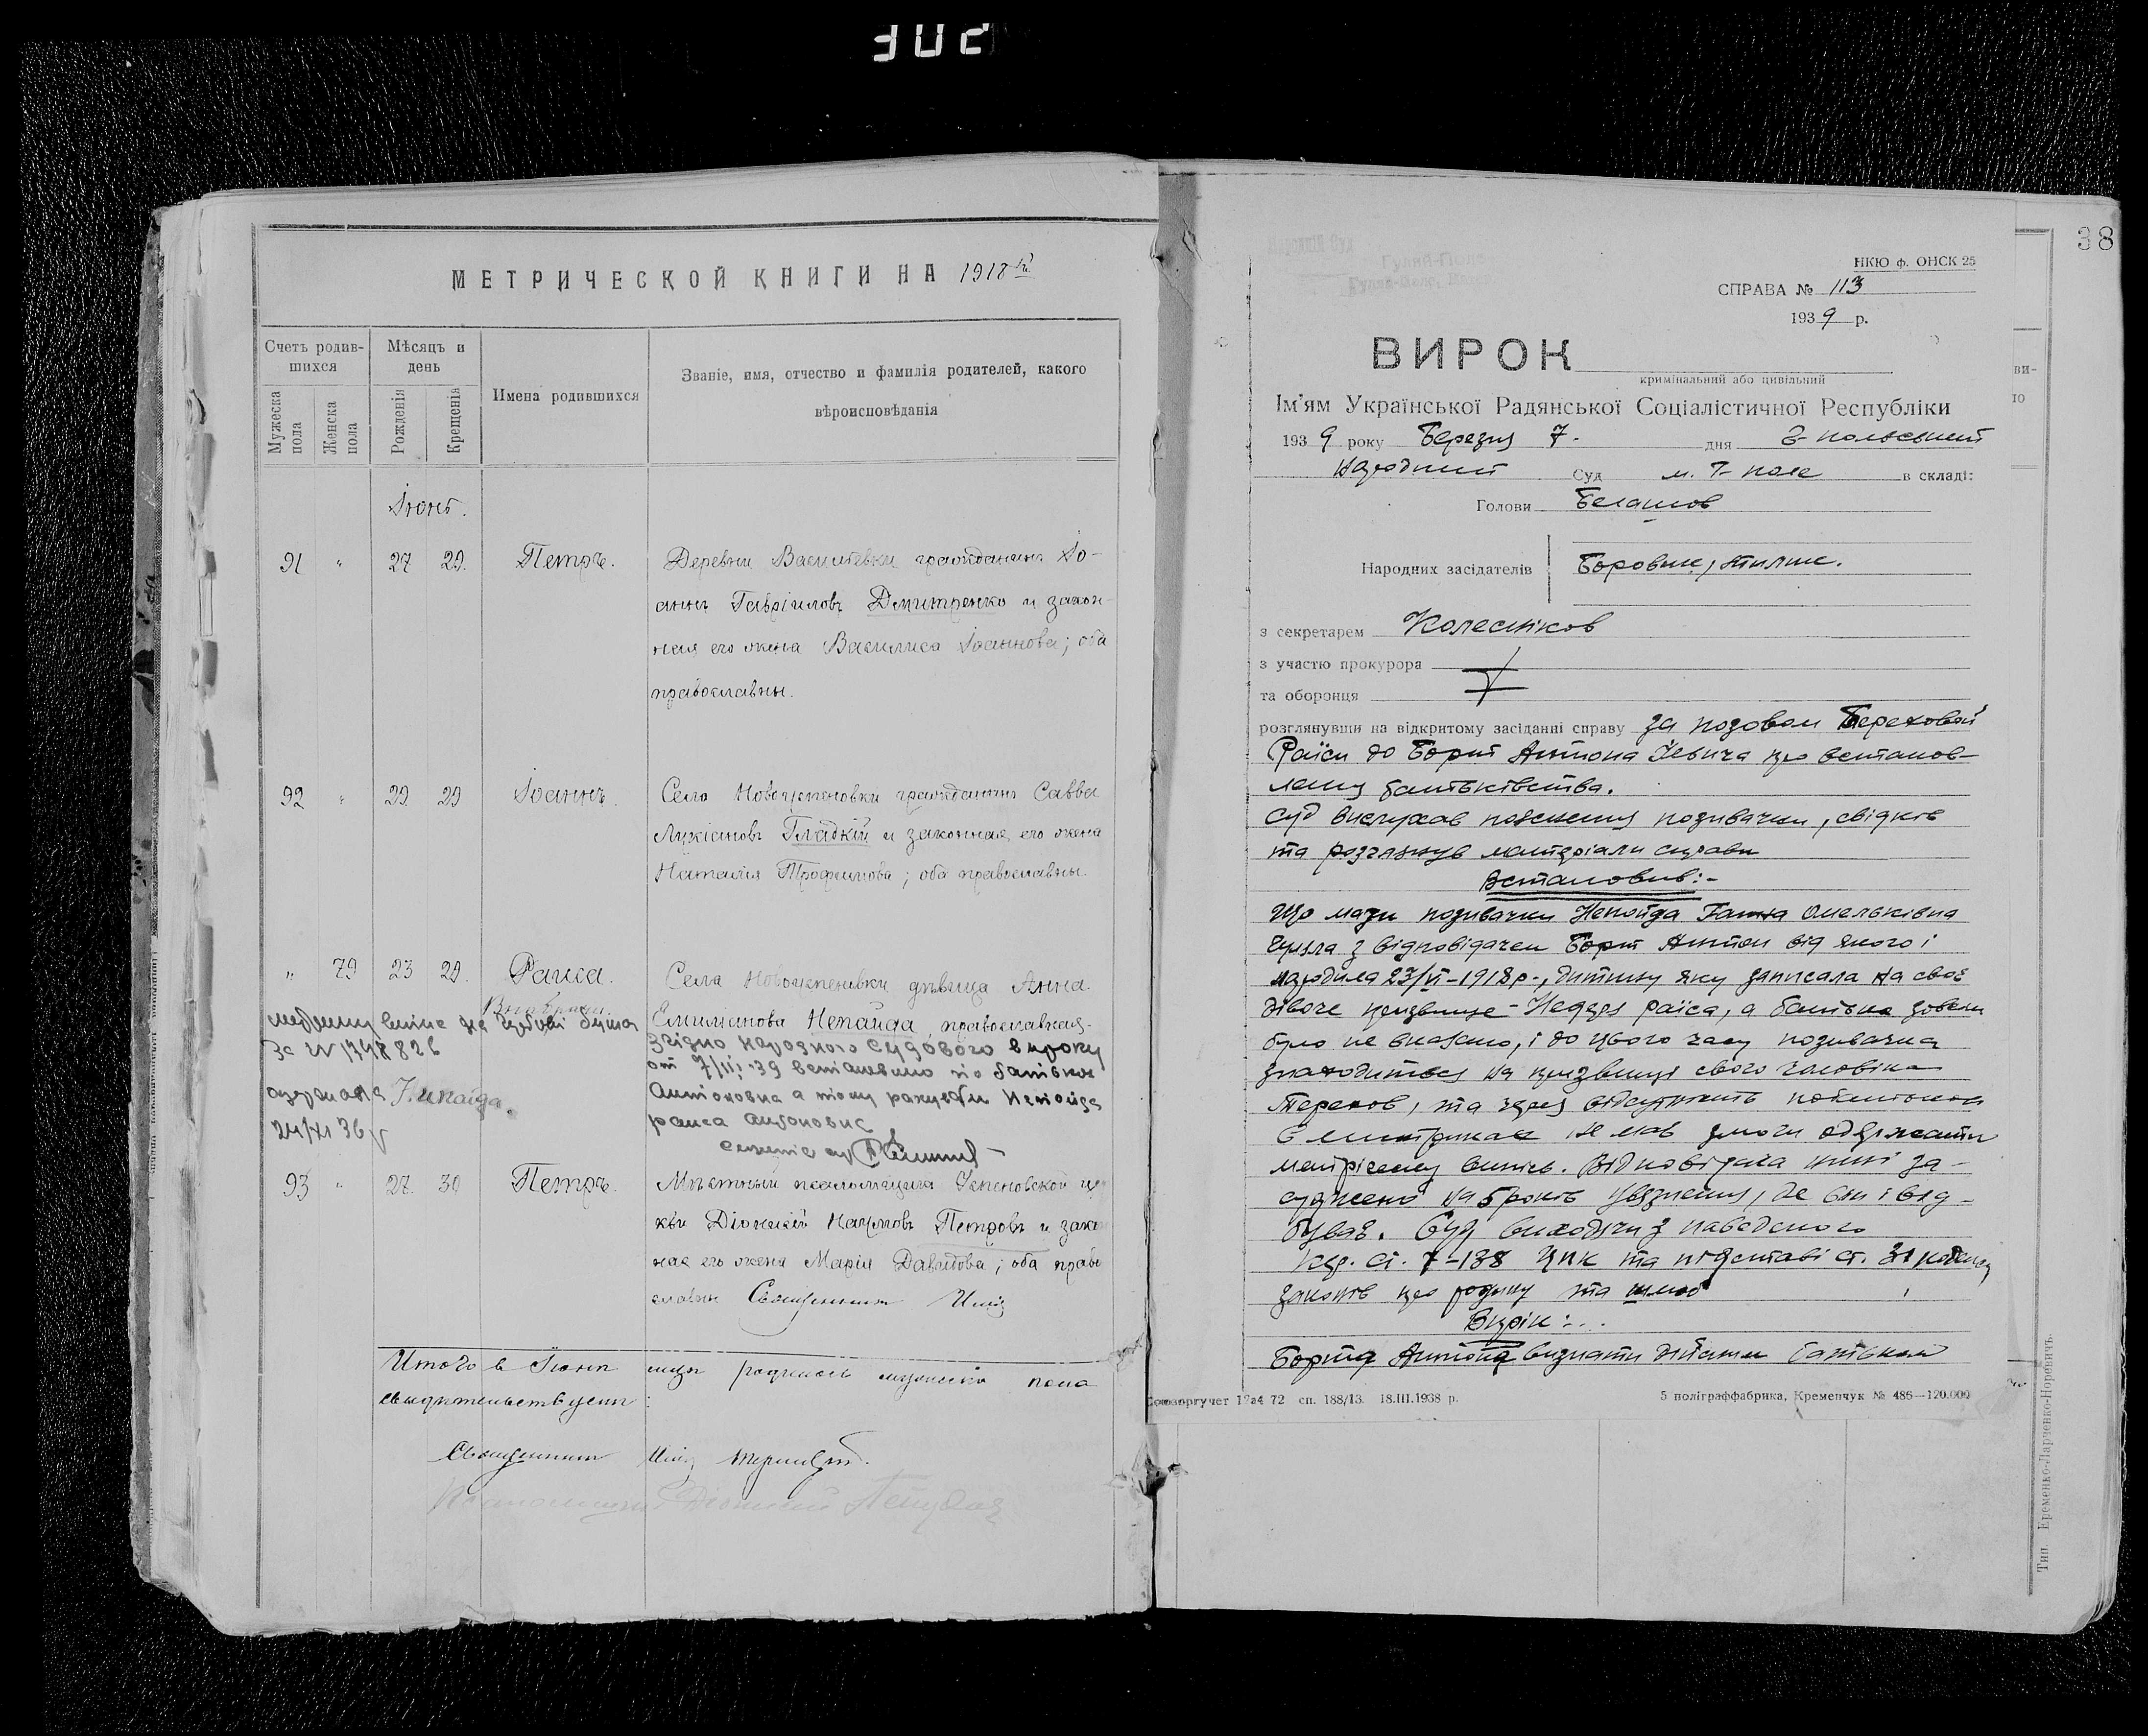 302
МЕТРИЧЕСКОЙ КНИГИ НА 1918 й
Счетъ родив-
шихся
Мѣсяцъ и
день
Имена родившихся
Званіе, имя, отчество и фамилія родителей, какого
вѣроисповѣданія
Мужеска
пола
Женска
пола
Рожденія
Крещенія
Іюнь.
91 " 27 29. Петръ. Деревни Васильевки гражданинъ Іо-
аннъ Гавріиловъ Дмитренко и закон-
ная его жена Василиса Іоаннова; оба
православны.
92 " 29 29 Іоаннъ. Села Новоуспеновки гражданинъ Савва
Лукіановъ Гладкій и законная его жена
Наталія Трофимова; оба православны.
" 79 23 29. Раиса. Села Новоуспеновки дѣвица Анна
Внебрачн.
Емиліанова Непайда, православная.
за № 1348826
Згідно Народного Судового вироку
от 7/III-39 встановлено по батькові
Антоновна а тому рахувати Непойда
раиса антоновна
одержала
24/XI 36 г
93 " 27. 30 Петръ. Мѣстный псаломщикъ Успеновской це
кви Діонисій Наумовъ Петровъ и зако
ная его жена Марія Давидова; оба право
славны Священникъ
Итого в Іюнѣ родилось мужеска пола
свидетельствуемъ:
Священникъ
Псаломщикъ Діонисій Петровъ
38
НКЮ ф. ОНСК 25
СПРАВА № 113
1939 р.
ВИРОК
кримінальний або цивільний
Ім'ям Української Радянської Соціалістичної Республіки
1939 року Березня 7. дня Г-польський
Народний Суд м. Г-поле в складі:
Голови Белашов
Народних засідателів Боровик,
з секретарем Колесніков
з участю прокурора
та оборонця
розглянувши на відкритому засіданні справу за позовом Тереховой
Раїси до Борт Антона Ілевича про встанов-
лення батьківства.
Суд вислухав пояснення позивачки, свідків
та розглянув матеріали справи
Встановив:-
Що мати позивачки Непойда Ганна Омельківна
гуляла з відповідачем Борт Антон від якого і
народила 23/VI-1918 р., дитину яку записала на своє
дівоче призвище - раїса, а батька зовсем
було не вказано, і до цього часу позивачка
знаходиться на призвищі свого чоловіка
Терехов, та через відсутність
в метриках не мав змоги одержати
метрісечну випись. Відповідача нині за-
суджено на 5 років увязнення, де він і від-
бував. Суд виходячи з наведеного
кер. ст. 7-138 ЦПК та підставі ст.
законів про родину та шлюб
Вирік:..
Борта Антона визнати батьком
72 сп. 188/13. 18.III.1938 р.
5 поліграффабрика, Кременчук № 486—120.000
Тип. Еременко-Ларченко-Норевичъ.